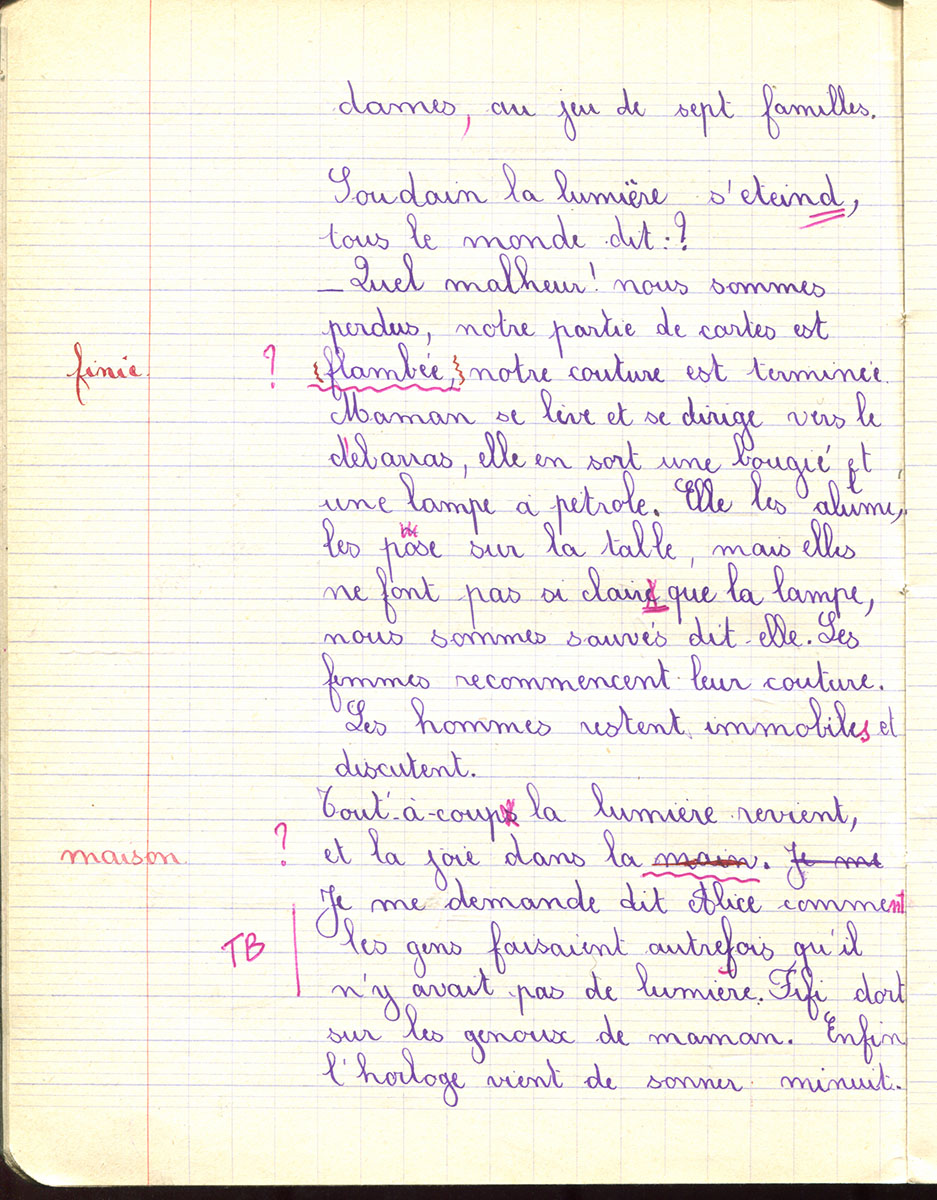 dames, au jeu de sept familles.
Soudain la lumière s'eteind,
tous le monde dit :?
_ Quel malheur! nous sommes
perdus, notre partie de cartes est
finie. ? {flambée,} notre couture est terminée.
Maman se lève et se dirige vers le
débarras, elle en sort une bougie et
une lampe à petrole. Elle les alume,
les pose sur la table, mais elles
ne font pas si clair que la lampe,
nous sommes sauvés dit-elle. Les
femmes recommencent leur couture.
Les hommes restent immobiles et
discutent.
Tout-à-coup la lumière revient,
maison ? et la joie dans la main. Je me
Je me demande dit Alice comment
TB les gens faisaient autrefois qu'il
n'y avait pas de lumière. Fifi dort
sur les genoux de maman. Enfin
l'horloge vient de sonner minuit.